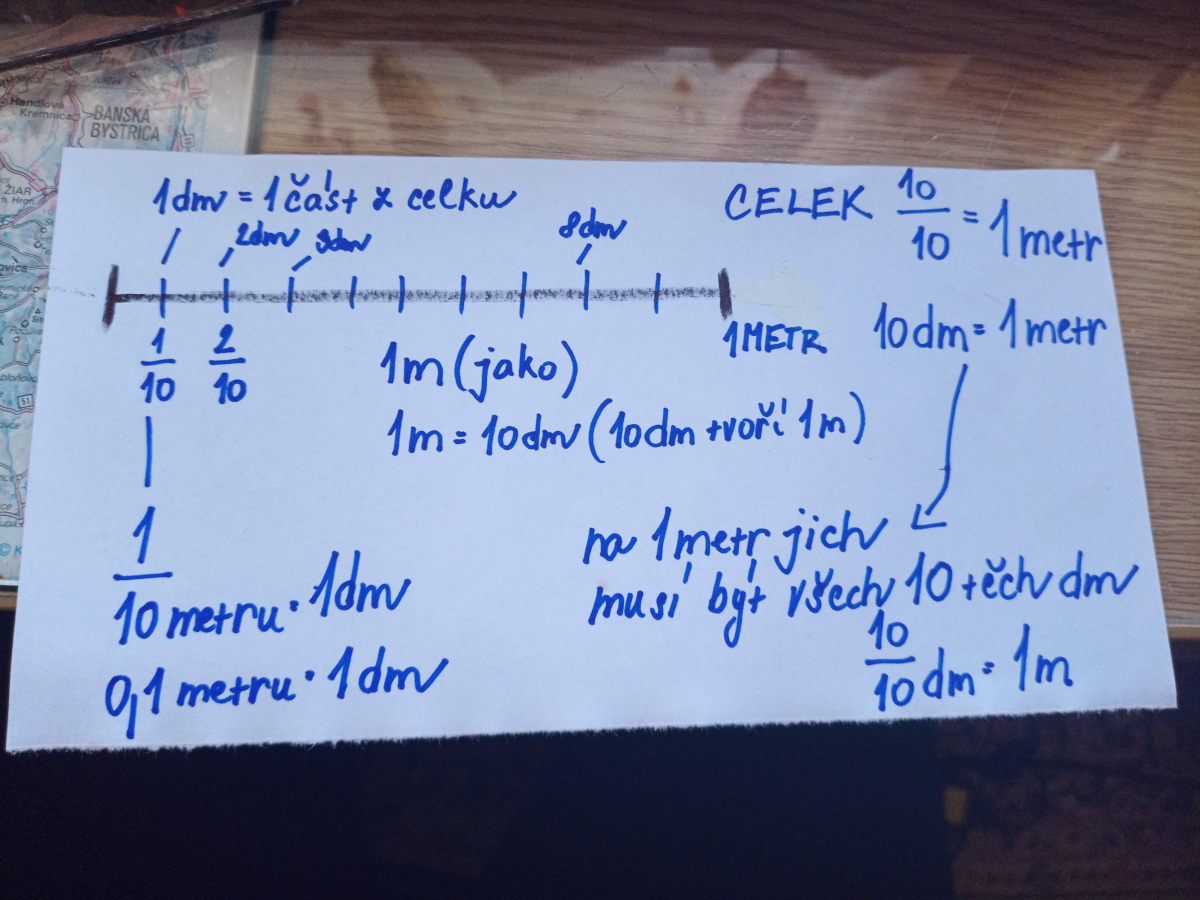 Handlová
Kremnica
BANSKÁ
BYSTRICA
ŽIAR
n. Hron
51
1dm = 1 část z celku
2dm 3dm
8dm
1/10 2/10
1METR
1m (jako)
1m = 10dm (10dm tvoří 1m)
1/10 metru = 1dm
0,1 metru = 1dm
CELEK 10/10 = 1 metr
10dm = 1metr
na 1metr jich
musí být všech 10 těch dm
10/10 dm = 1m